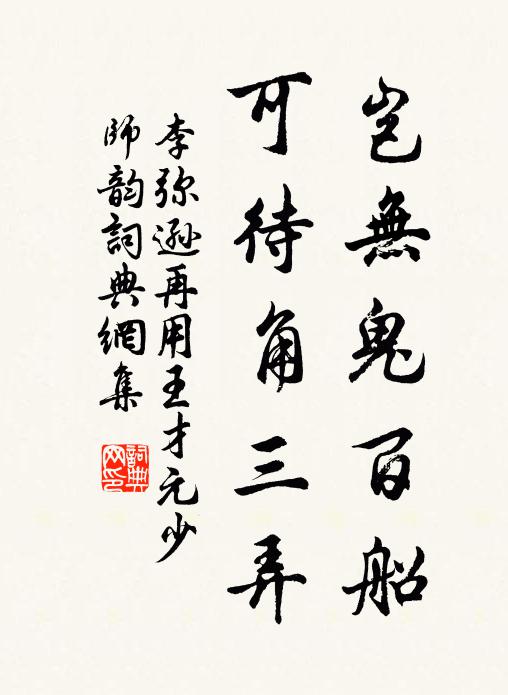 岂無鬼百船
可待角三弄
李弥遜再用王才元少
師韵詞典網集
詞典网印